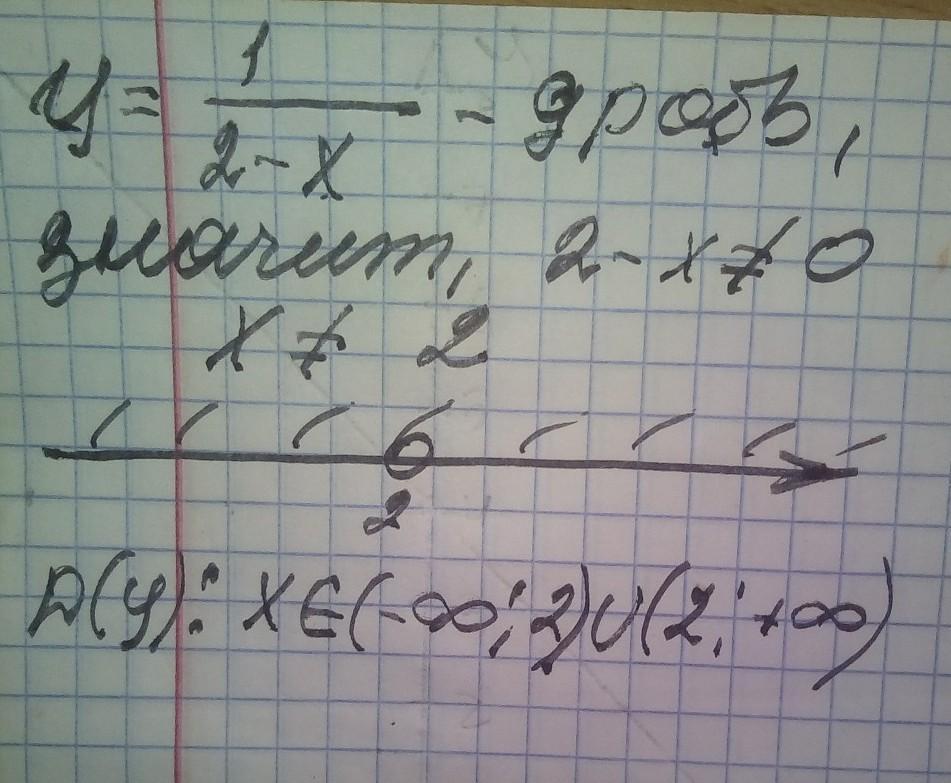 y = 1/(2-x) - дробь,
значит, 2-x≠0
x ≠ 2
2
D(y): x∈(-∞; 2)∪(2; +∞)